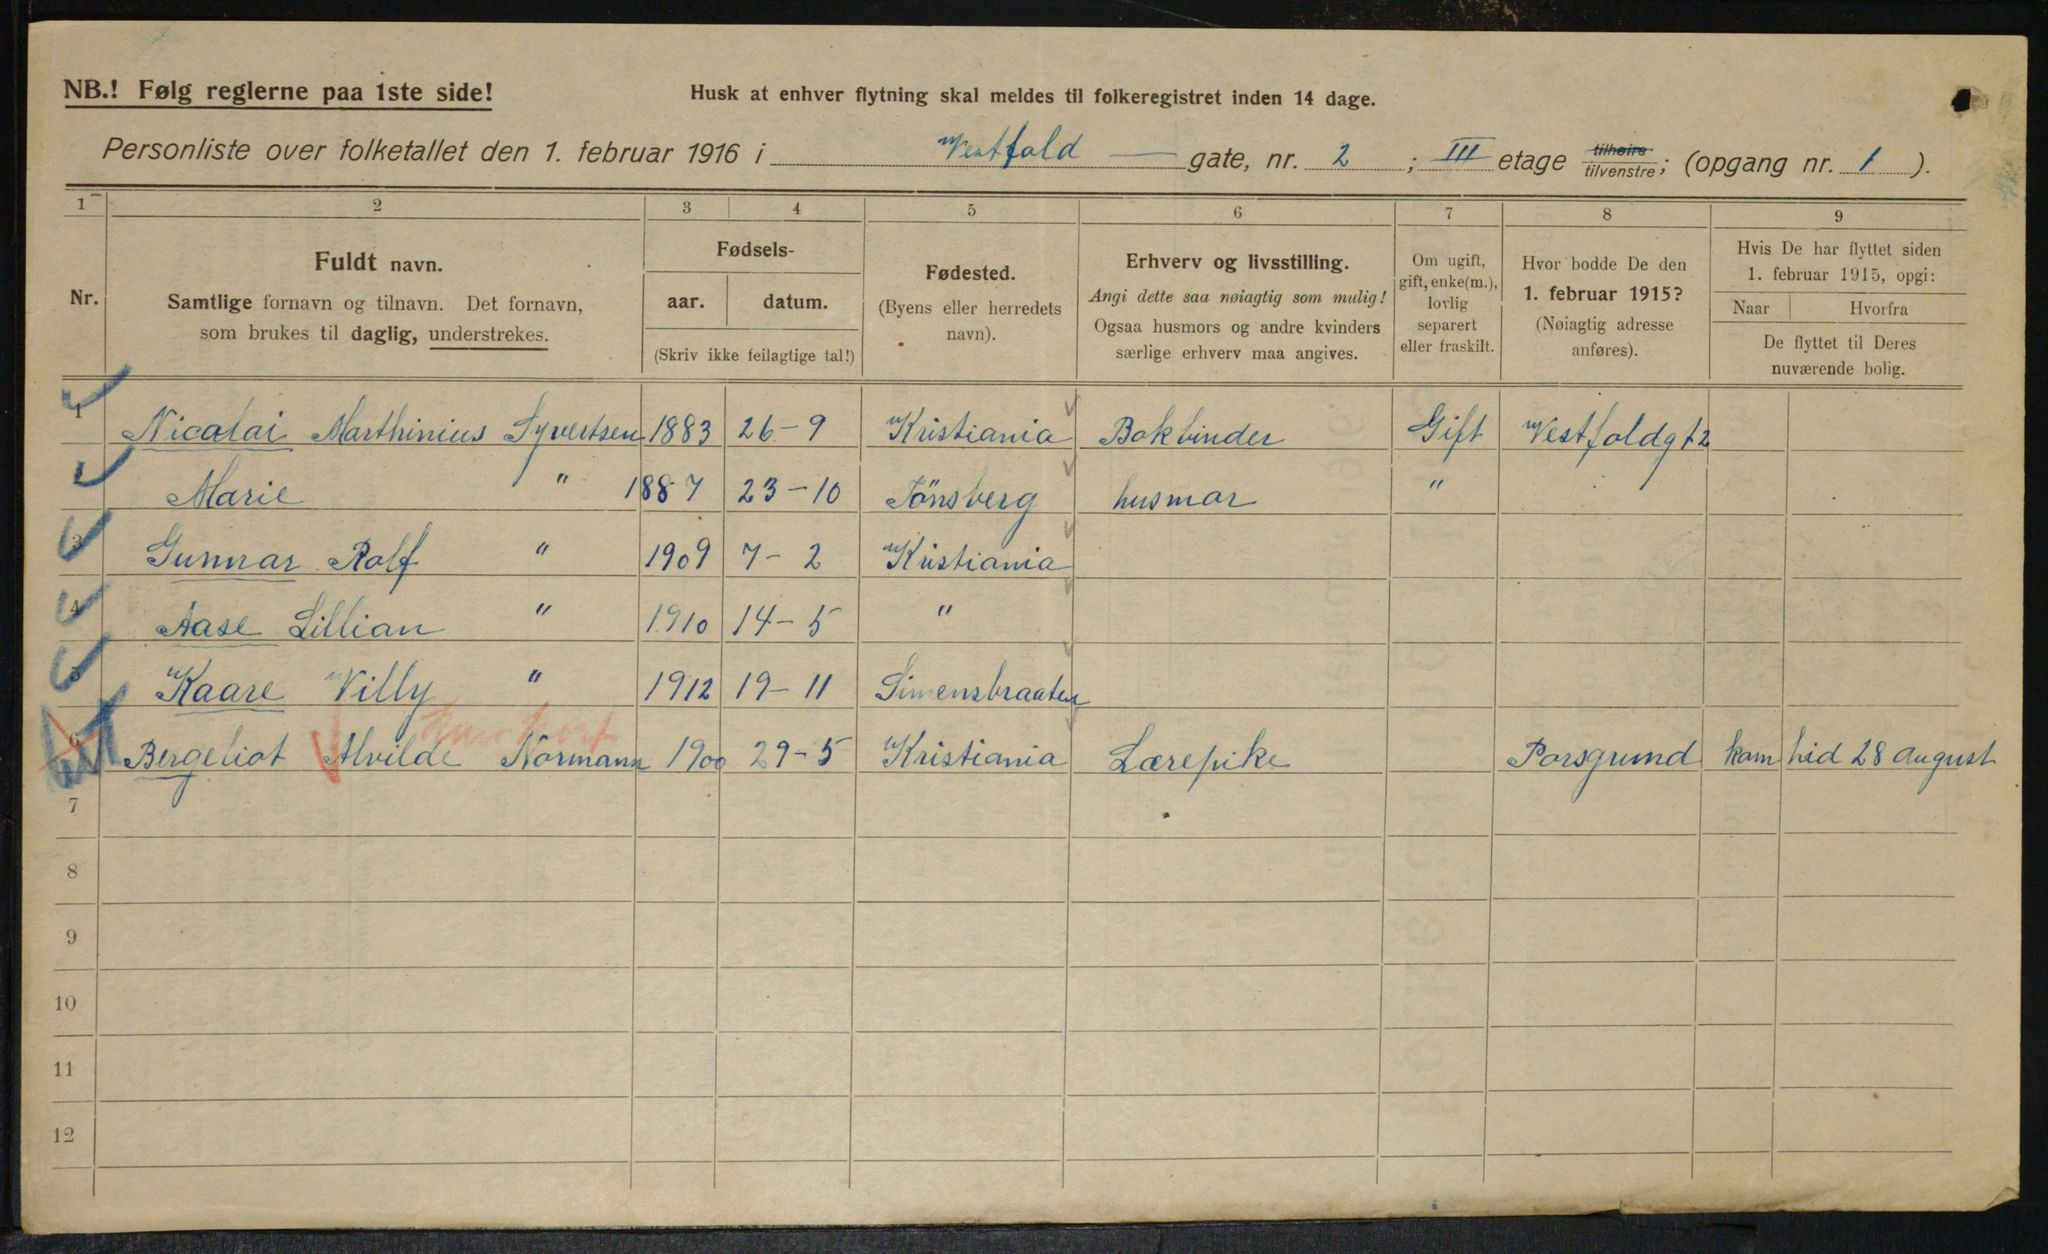 NB.! Følg reglerne paa 1ste side!
Husk at enhver flytning skal meldes til folkeregistret inden 14 dage.
Personliste over folketallet den 1. februar 1916 i Vestfold — gate, nr. 2 ; III etage tilhøire/tilvenstre; (opgang nr. 1 ).
1 2 3 4 5 6 7 8 9
Nr.
Fuldt navn.
Samtlige fornavn og tilnavn. Det fornavn,
som brukes til daglig, understrekes.
Fødsels-
aar. datum.
(Skriv ikke feilagtige tal!)
Fødested.
(Byens eller herredets
navn).
Erhverv og livsstilling.
Angi dette saa nøiagtig som mulig!
Ogsaa husmors og andre kvinders
særlige erhverv maa angives.
Om ugift,
gift, enke(m.),
lovlig
separert
eller fraskilt.
Hvor bodde De den
1. februar 1915?
(Nøiagtig adresse
anføres).
Hvis De har flyttet siden
1. februar 1915, opgi:
Naar Hvorfra
De flyttet til Deres
nuværende bolig.
1 Nicolai Marthinius Syvertsen 1883 26-9 Kristiania Bokbinder Gift Vestfoldgt 2
Marie " 1887 23-10 Tönsberg husmor "
3 Gunnar Rolf " 1909 7-2 Kristiania
4 Aase Lillian " 1910 14-5 "
5 Kaare Villy " 1912 19-11 Simensbraaten
6 Bergeliot Alvilde Normann 1900 29-5 Kristiania Lærepike Porsgrund kom hid 28 August
7
8
9
10
11
12